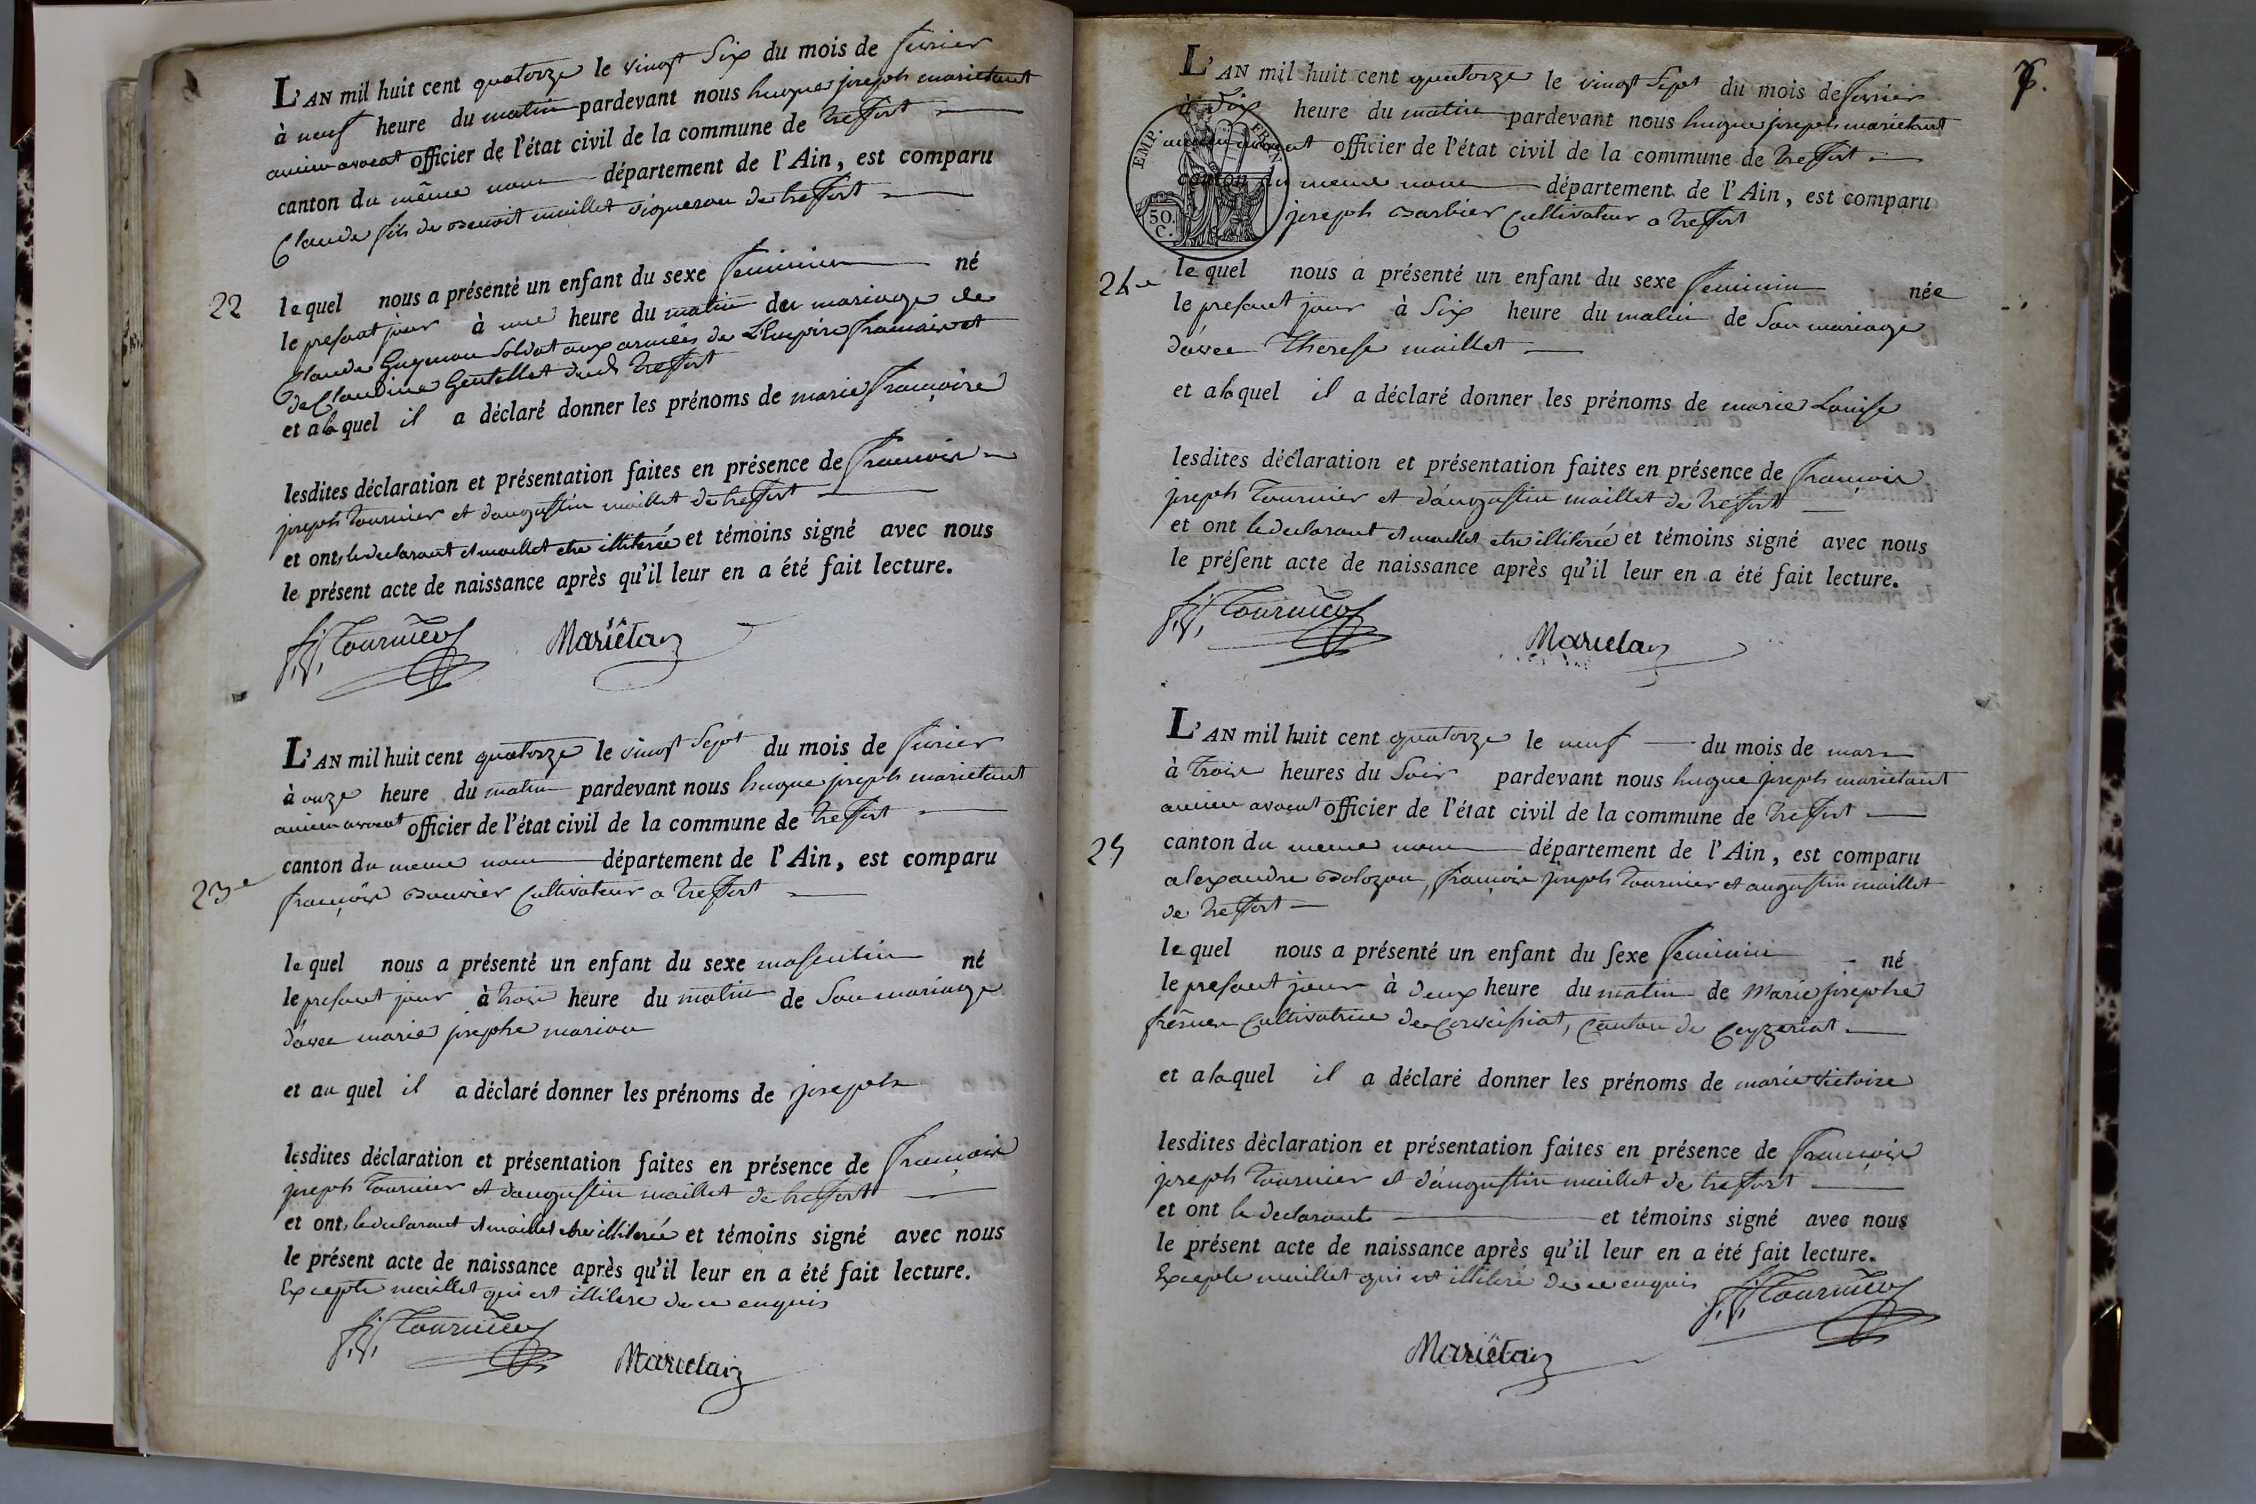 L'AN mil huit cent quatorze le vingt Six du mois de fevrier
à neuf heure du matin pardevant nous hugue joseph marietant
ancien avocat officier de l'état civil de la commune de treffort
canton du même nom département de l'Ain, est comparu
Claude fils de Benoit maillet vigneron de treffort
22
lequel nous a présenté un enfant du sexe feminin né
le present jour à une heure du matin du mariage de
Claude Guymon Soldat aux armées de L'Empire francais et
de Claudine Gentellet dud treffort
et alaquel il a déclaré donner les prénoms de marie francoise
lesdites déclaration et présentation faites en présence de francois
joseph tournier et d'augustin maillet de treffort
et ont, le declarant et maillet etre illiterée et témoins signé avec nous
le présent acte de naissance après qu'il leur en a été fait lecture.
f. j. Tournier Mariëtan
L'AN mil huit cent quatorze le vingt Sept du mois de fevrier
à onze heure du matin pardevant nous hugue joseph marietant
ancien avocat officier de l'état civil de la commune de treffort
canton du meme nom département de l'Ain, est comparu
23e
françois Bouvier Cultivateur a treffort
lequel nous a présenté un enfant du sexe masculin né
le present jour à trois heure du matin de Son mariage
d'avec marie josephe marion
et auquel il a déclaré donner les prénoms de joseph
lesdites déclaration et présentation faites en présence de françois
joseph tournier et d'augustin maillet de treffort
et ont, le declarant et maillet etre illiterée et témoins signé avec nous
le présent acte de naissance après qu'il leur en a été fait lecture.
Excepte maillet qui est illitere de ce enquis
f. j. Tournier Marietan
7.
L'AN mil huit cent quatorze le vingt Sept du mois de fevrier
à Dix heure du matin pardevant nous hugue joseph marietant
ancien avocat officier de l'état civil de la commune de treffort
canton du meme nom département de l'Ain, est comparu
joseph Barbier Cultivateur a treffort
EMP. FRAN
50. C.
24e
lequel nous a présenté un enfant du sexe feminin née
le present jour à Six heure du matin de Son mariage
d'avec Therese maillet
et alaquel il a déclaré donner les prénoms de marie Louise
lesdites déclaration et présentation faites en présence de françois
joseph tournier et d'augustin maillet de treffort
et ont le declarant et maillet etre illiterée et témoins signé avec nous
le présent acte de naissance après qu'il leur en a été fait lecture.
f. j. Tournier Marietan
L'AN mil huit cent quatorze le neuf du mois de mars
à trois heures du Soir pardevant nous hugue joseph marietant
ancien avocat officier de l'état civil de la commune de treffort
25
canton du meme nom département de l'Ain, est comparu
alexandre Bolozon, françois joseph tournier et augustin maillet
de treffort
lequel nous a présenté un enfant du sexe feminin né
le present jour à deux heure du matin de Marie josephe
Cultivatrice de Corveissiat, Canton de Ceyzeriat
et alaquel il a déclaré donner les prénoms de marie victoire
lesdites déclaration et présentation faites en présence de françois
joseph tournier et d'augustin maillet de treffort
et ont le declarant et témoins signé avec nous
le présent acte de naissance après qu'il leur en a été fait lecture.
Excepte maillet qui est illitere de ce enquis f. j. Tournier
Mariëtan